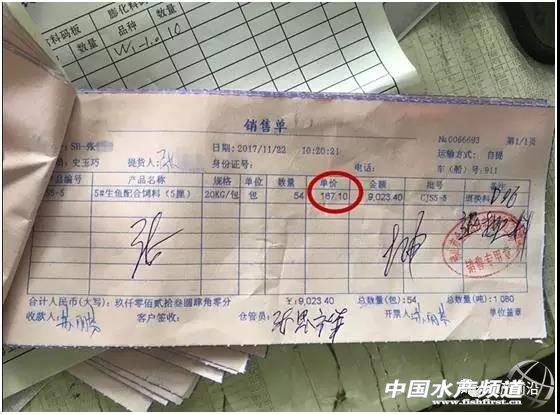 膨化料
料码板
品种
数量
品种
数量
销售单
SH-张
日期:2017/11/22 10:20:21
№0066693
第1/1页
史玉巧
提货人:张
身份证号:
电话:
运输方式:自提
车(船)号:911
产品名称 规格 单位 数量 单价 金额 批号
S5-5 5#生鱼配合饲料(5厘) 20KG/包 包 54 167.10 9,023.40 CJS5-5 退换料
张
坤
销售专用章
合计人民币(大写):玖仟零佰贰拾叁圆肆角零分 ¥:9,023.40 总数量(包):54 总数量(吨):1.080
收款人: 客户签收: 仓管员: 开票人: 单位盖章
中国水产频道
www.fishfirst.cn